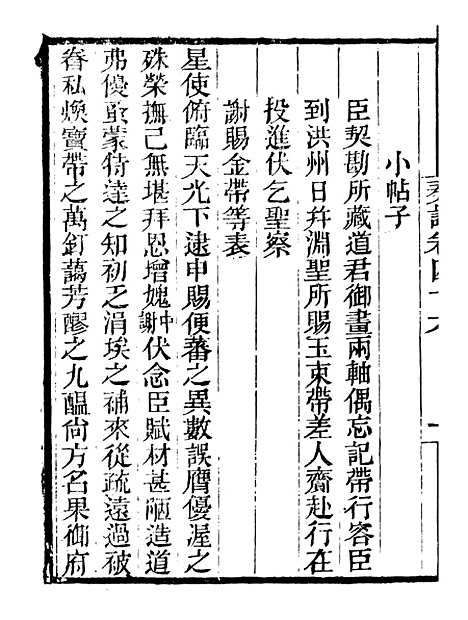 奏議卷四十六
一
小帖子
臣契勘所藏道君御畫兩軸偶忘記帶行容臣
到洪州日幷淵聖所賜玉束帶差人齎赴行在
投進伏乞聖察
謝賜金帶等表
星使俯臨天光下逮申賜便蕃之異數誤膺優渥之
殊榮撫己無堪拜恩增媿中謝伏念臣賦材甚陋造道
弗優蚤蒙侍達之知初乏涓埃之補來從疏遠過被
眷私煥寶帶之萬釘藹芳醪之九醖尙方名果御府